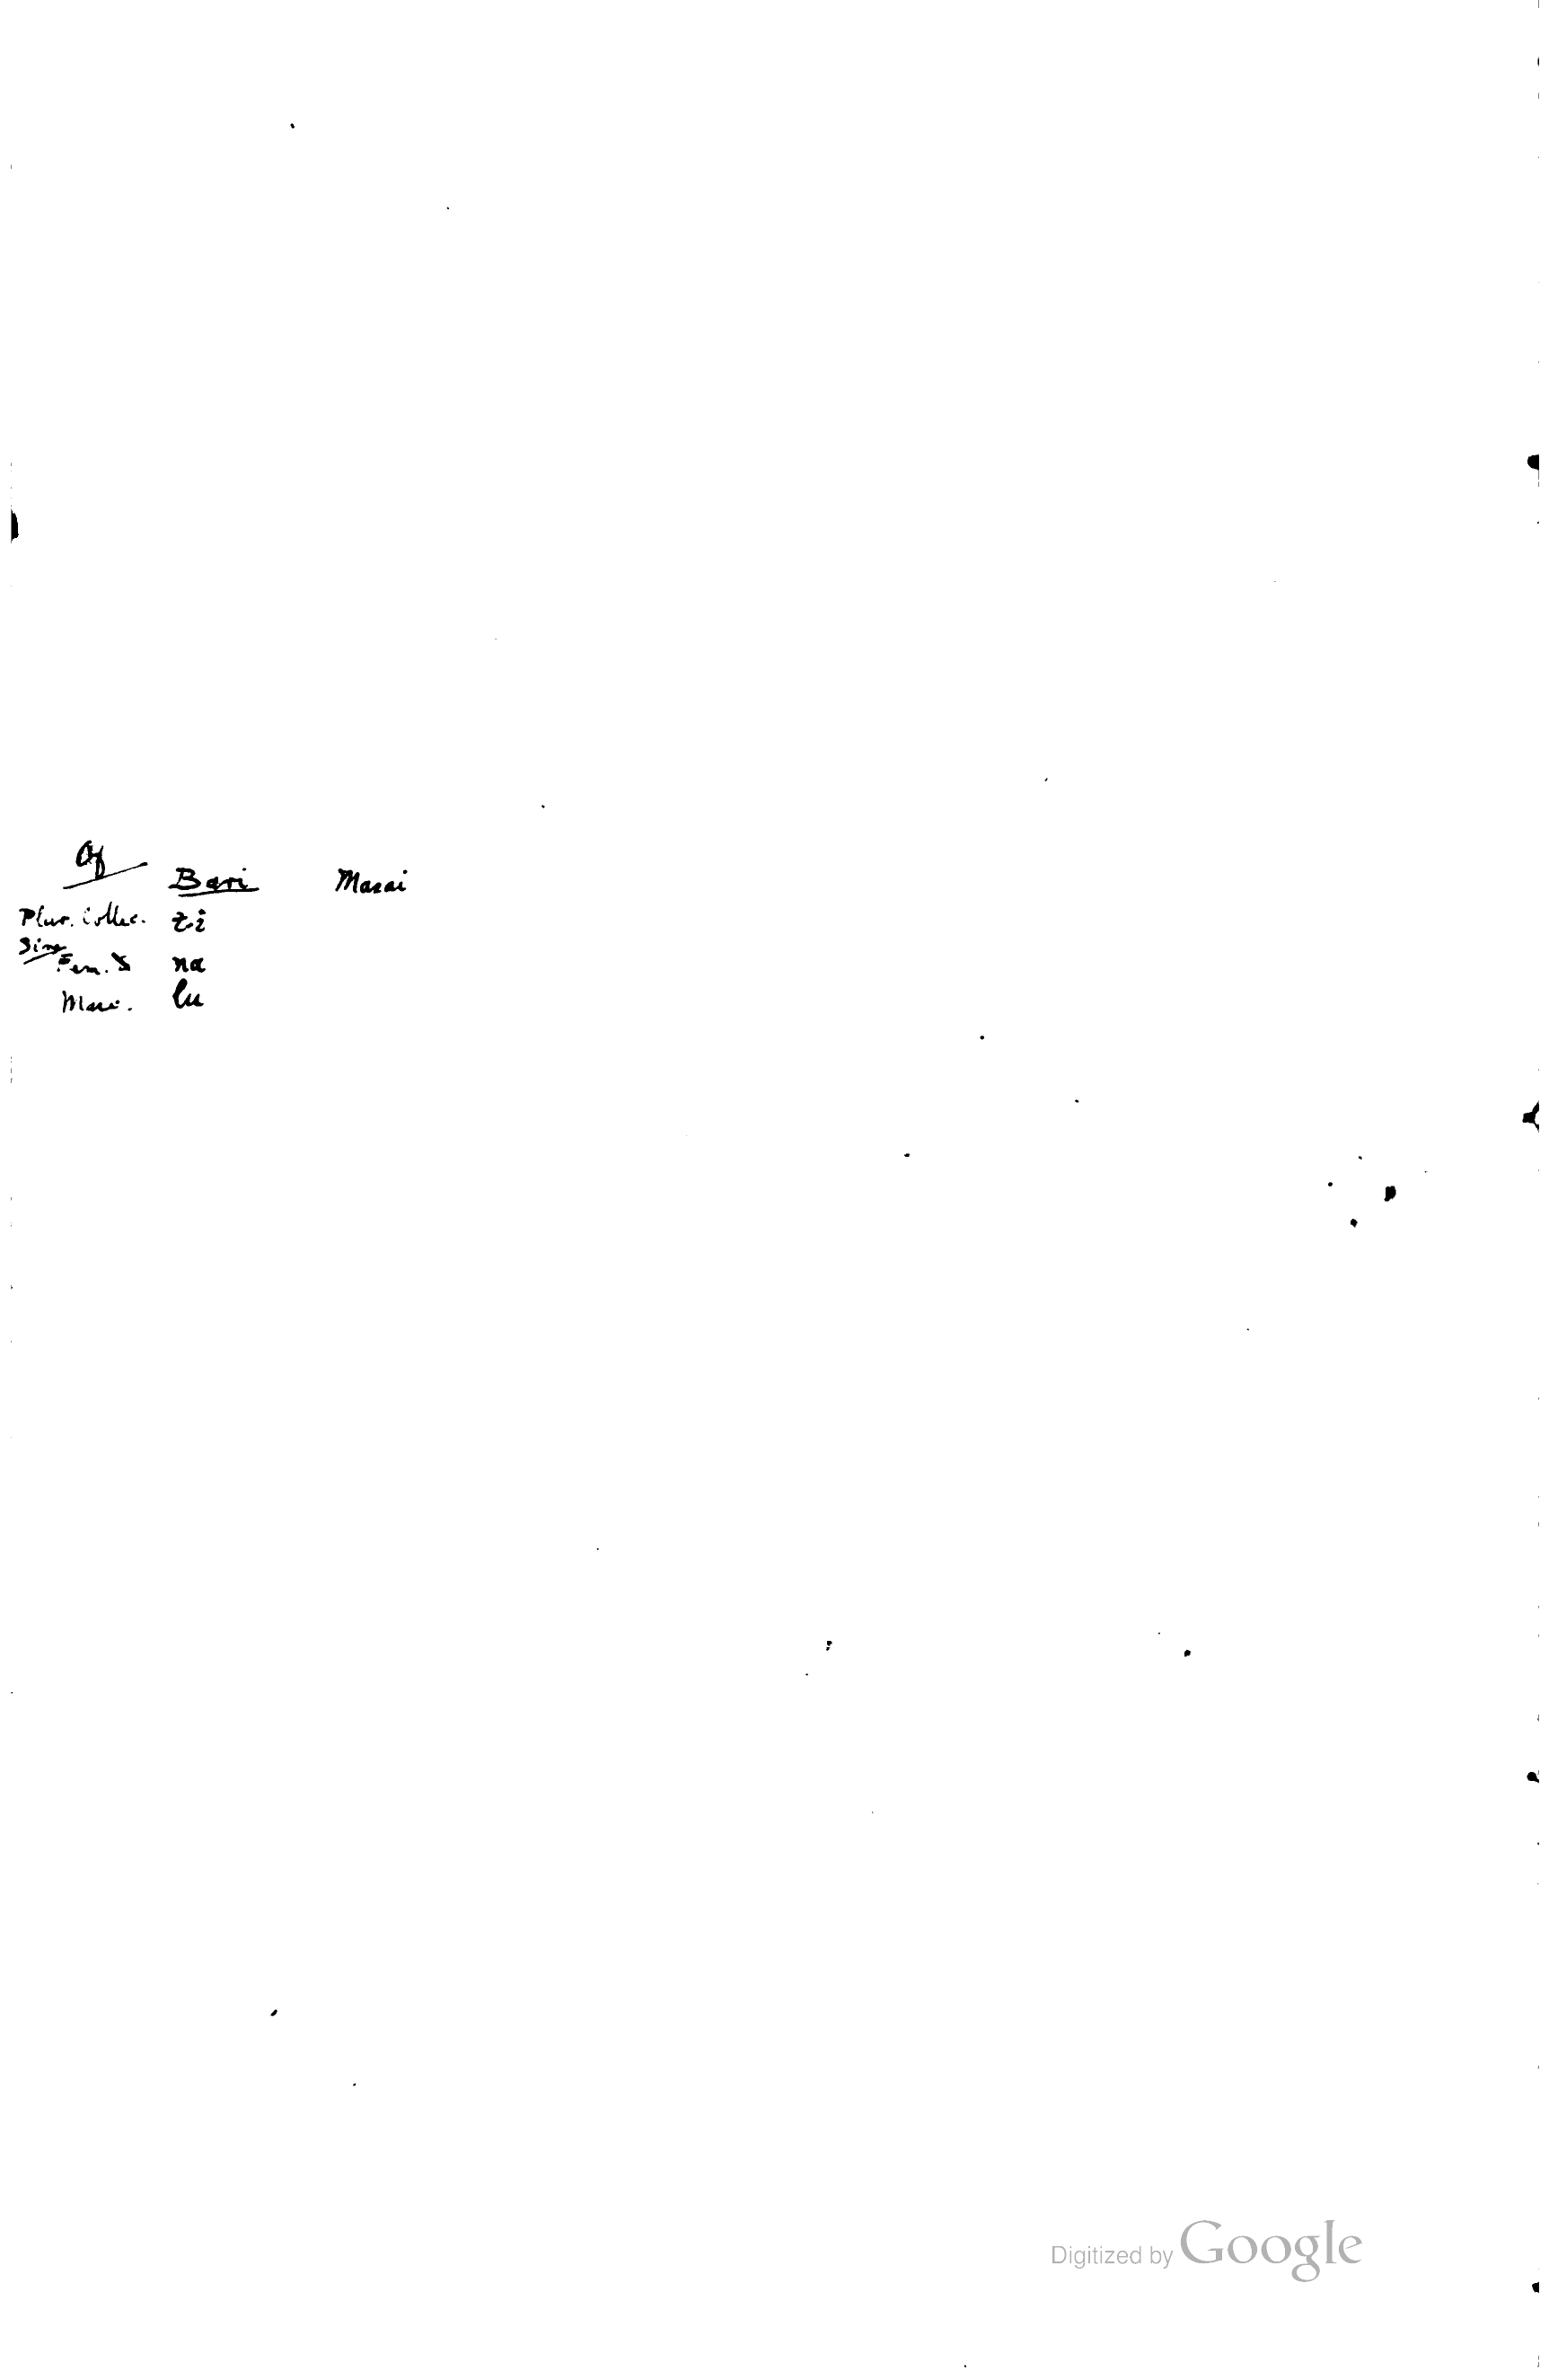 Of
Bari Masai
Plur. Collec. ti
Sing
Fem. na
Masc. lu
Digitized by Google